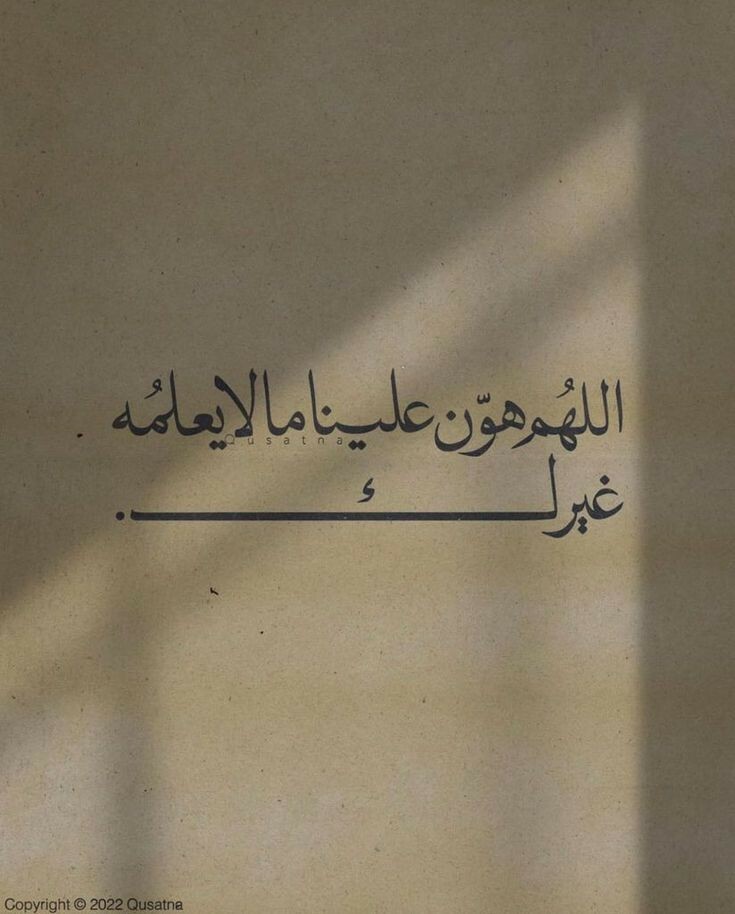 اللهُم هوّن علينا ما لا يعلمُه
Qusatna
غيرك.
Copyright © 2022 Qusatna